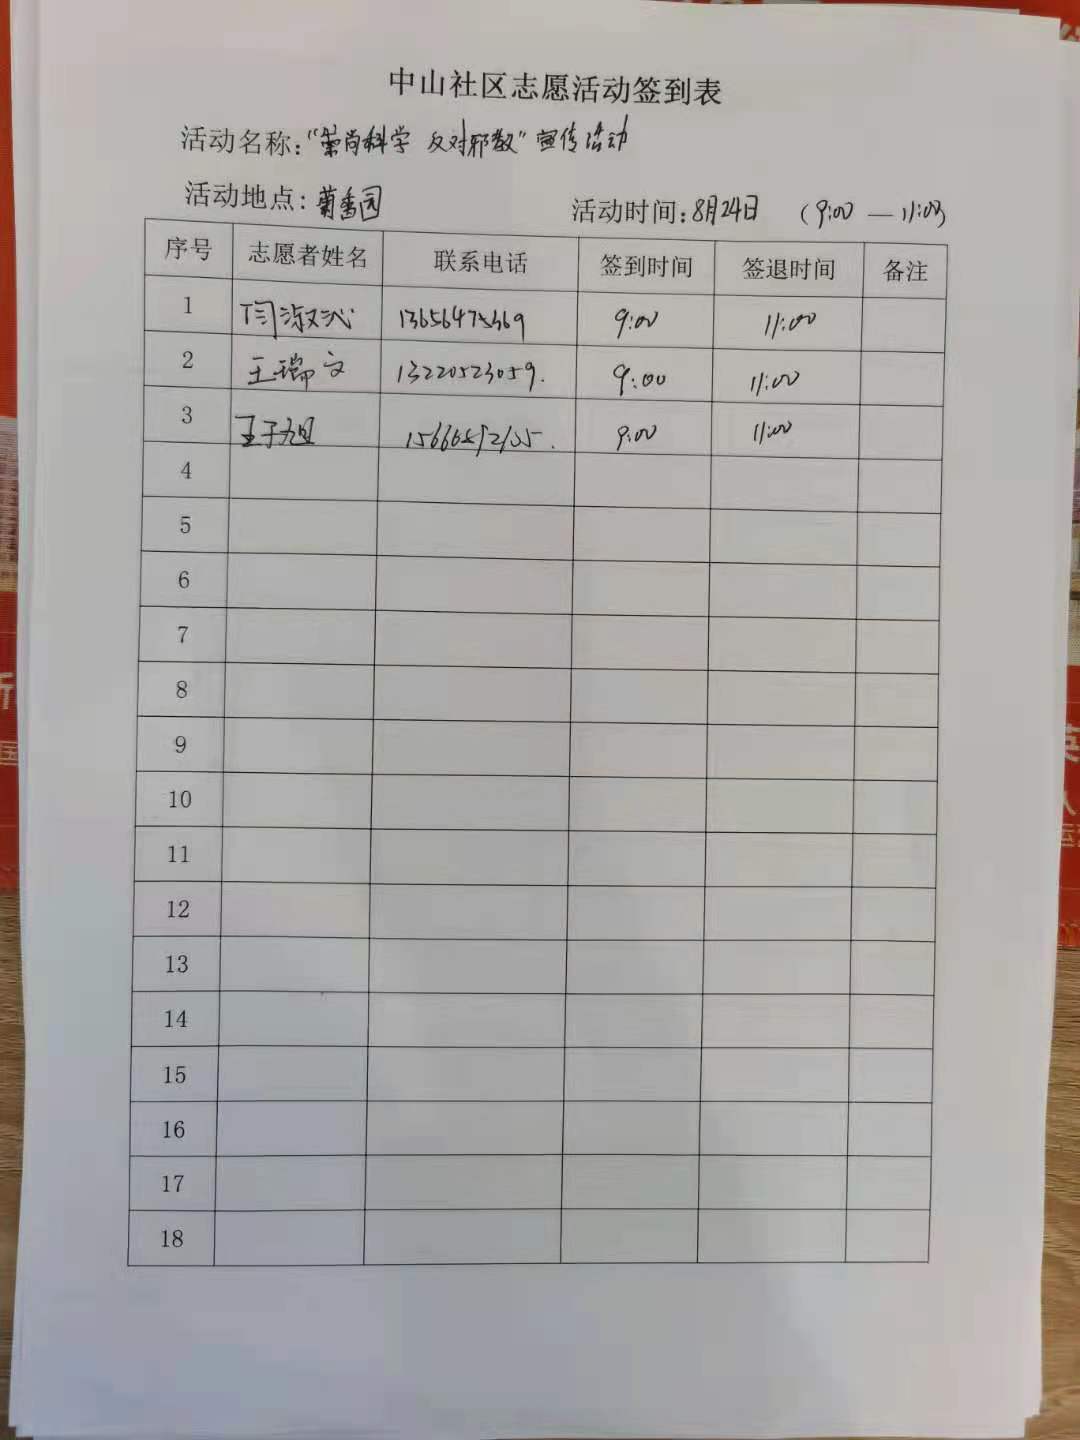 中山社区志愿活动签到表
活动名称："崇尚科学 反对邪教"宣传活动
活动地点：菊香园 活动时间：8月24日 (9:00 — 11:00)
序号 志愿者姓名 联系电话 签到时间 签退时间 备注
1 闫淑沁 13656475369 9:00 11:00
2 王瑞文 13220523059. 9:00 11:00
3 王子旭 9:00 11:00
4
5
6
7
8
9
10
11
12
13
14
15
16
17
18